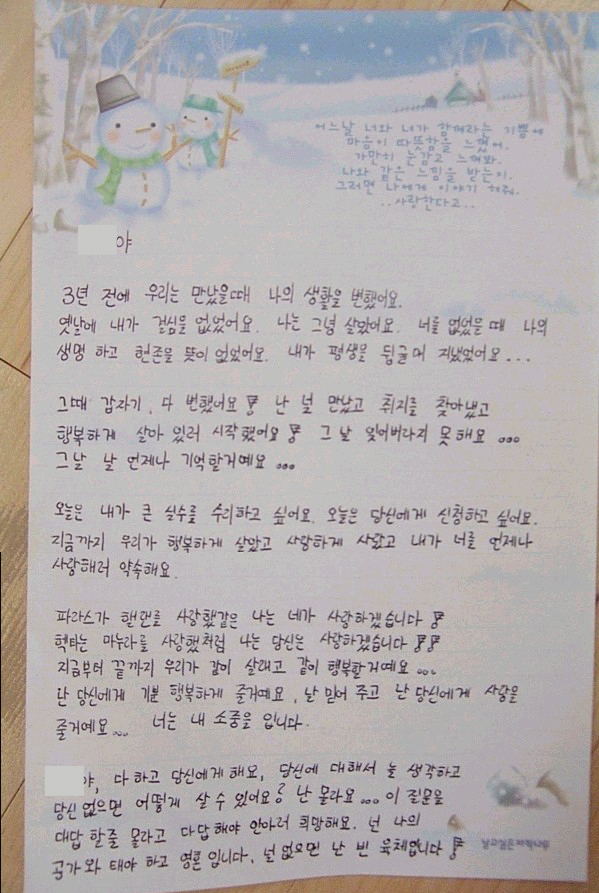 어느날 너와 내가 함께라는 기쁨에
마음이 따뜻함을 느꼈어.
가만히 눈감고 느껴봐.
나와 같은 느낌을 받는지.
그러면 나에게 이야기 해줘.
..사랑한다고..
야
3년 전에 우리는 만났을때 나의 생활을 변했어요.
옛날에 내가 결심을 없었어요. 나는 그냥 살았어요. 너를 없었을 때 나의
생명 하고 현존을 뜻이 없었어요. 내가 평생을 뒹굴며 지냈었어요...
그때 갑자기, 다 변했어요! 난 널 만났고 취지를 찾아냈고
행복하게 살아 있러 시작했어요! 그 날 잊어버리지 못해요...
그날 날 언제나 기억할거예요...
오늘은 내가 큰 실수를 수리하고 싶어요. 오늘은 당신에게 신청하고 싶어요.
지금까지 우리가 행복하게 살았고 사랑하게 사랐고 내가 너를 언제나
사랑해러 약속해요.
파라스가 핼랜를 사랑했같은 나는 네가 사랑하겠습니다!
헥타는 마누라를 사랑했처럼 나는 당신은 사랑하겠습니다!!
지금부터 끝까지 우리가 같이 살래고 같이 행복할거예요...
난 당신에게 기분 행복하게 줄거예요, 날 믿어 주고 난 당신에게 사랑을
줄거예요... 너는 내 소중을 입니다.
야, 다 하고 당신에게 해요, 당신에 대해서 늘 생각하고
당신 없으면 어떻게 살 수 있어요? 난 몰라요... 이 질문을
대답 할줄 몰라고 다답해야 안아러 희망해요. 넌 나의
공가 와 태야 하고 영혼 입니다, 널 없으면 난 빈 육체입니다!